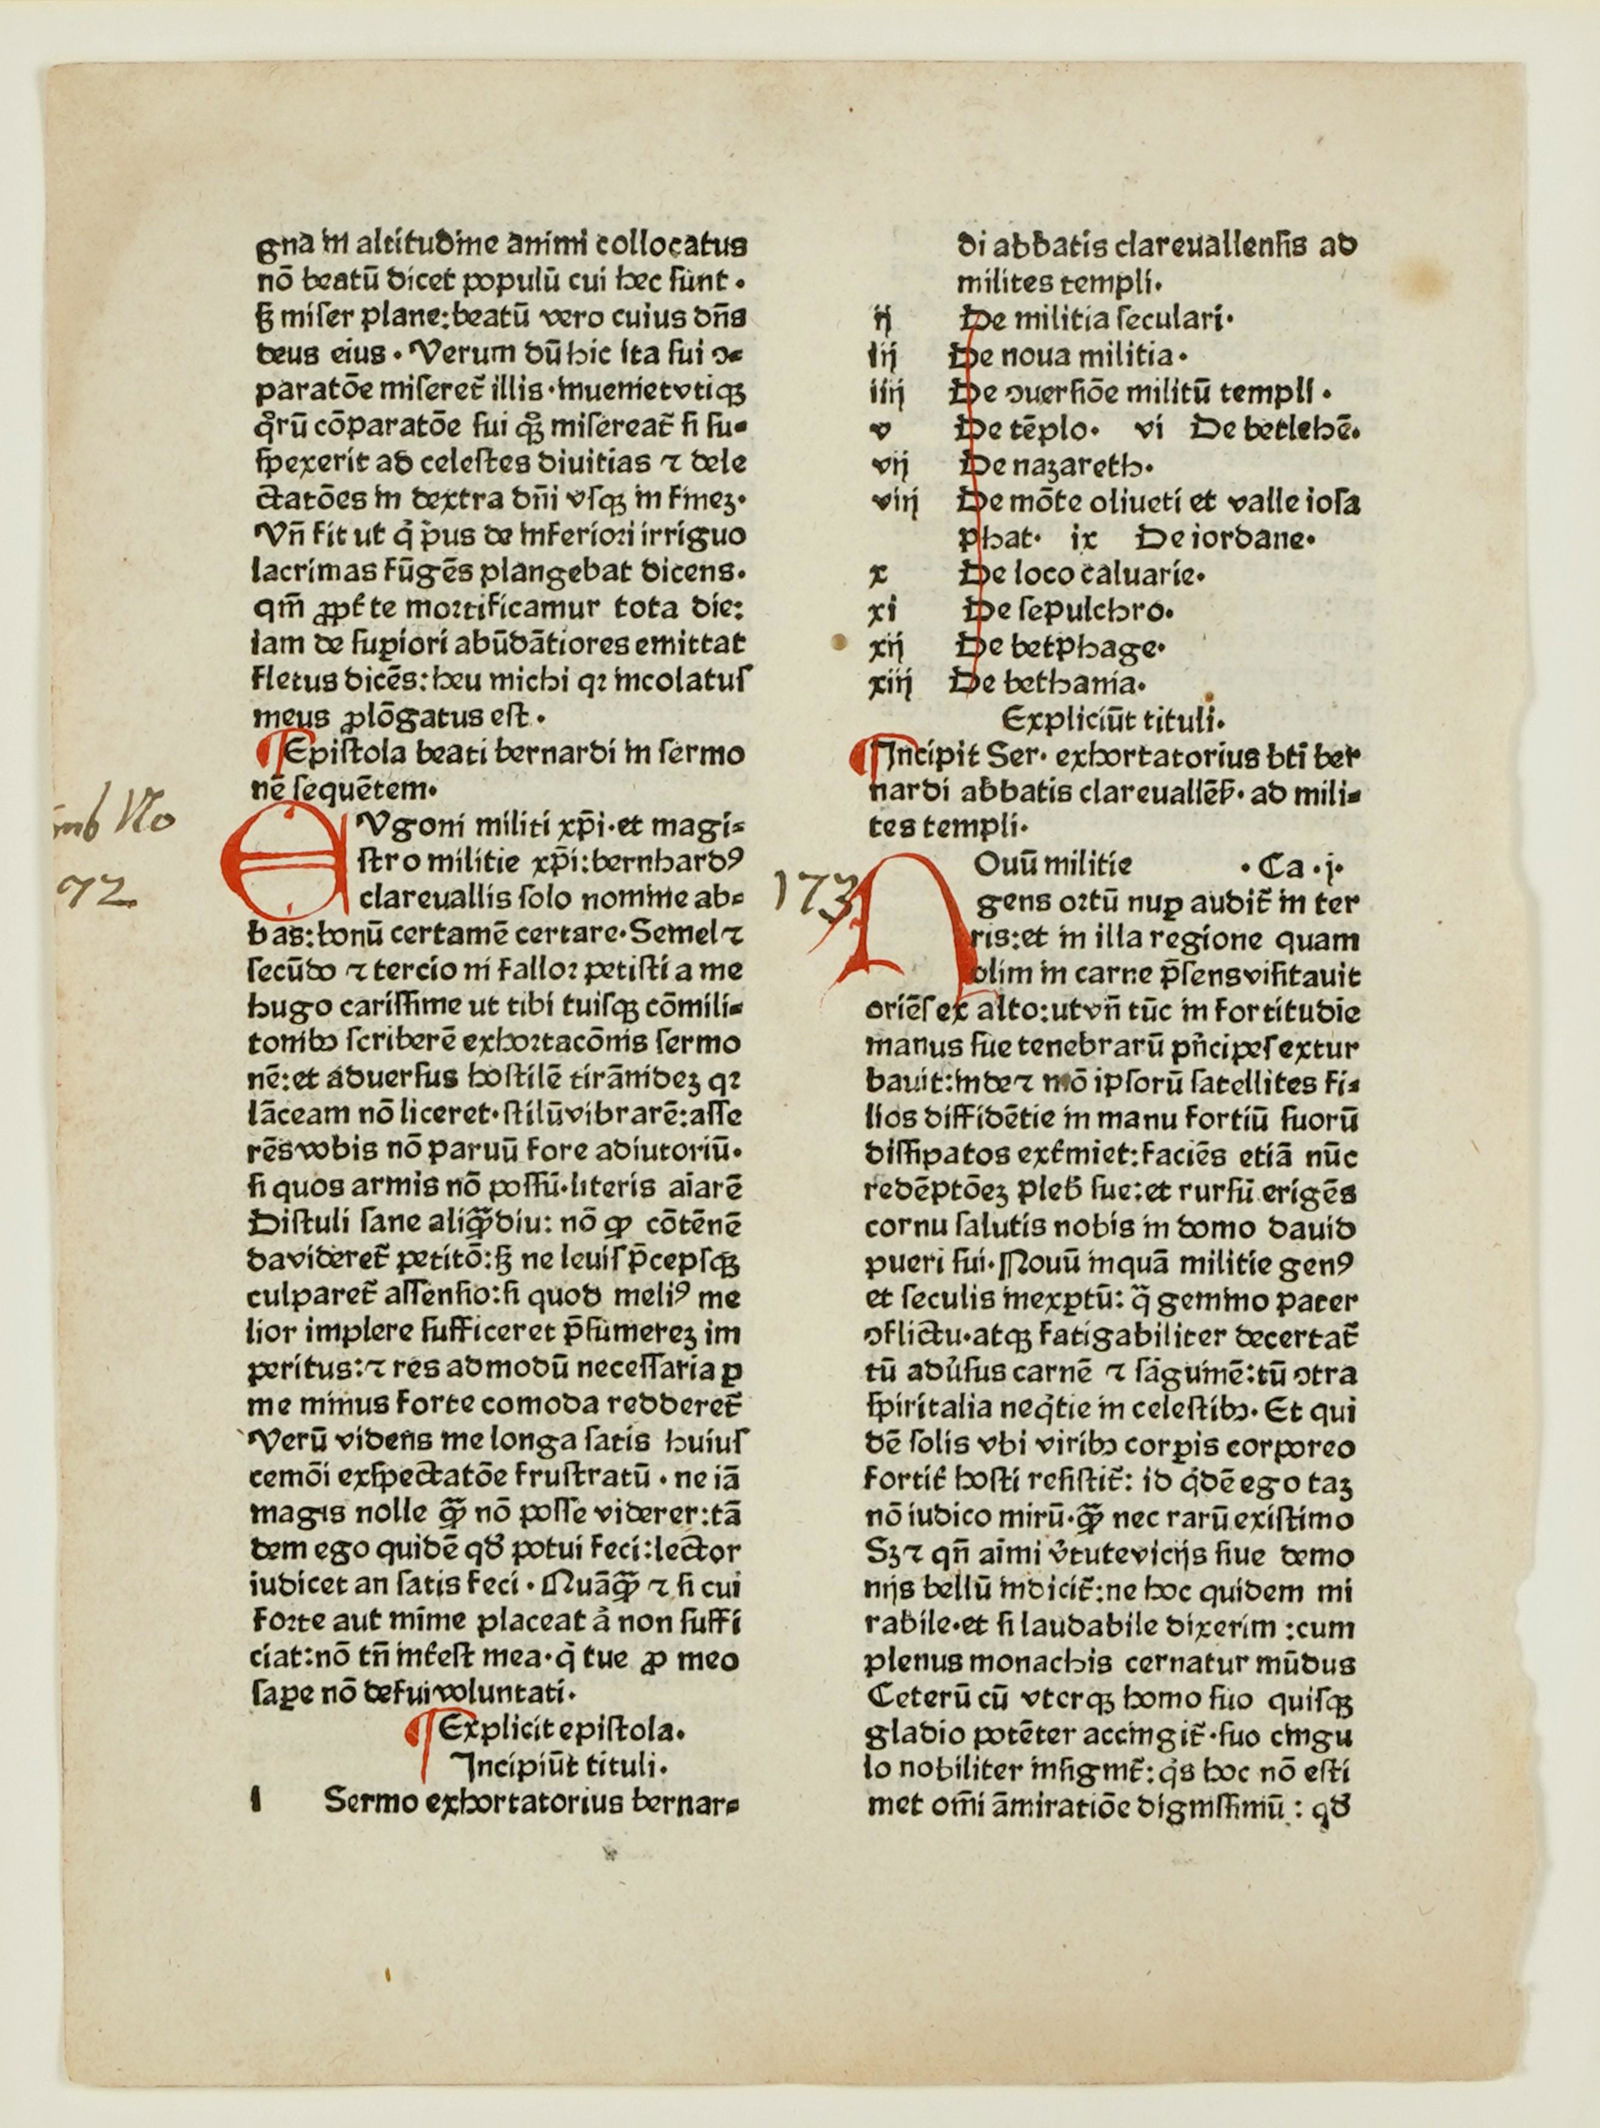 gna in altitudine animi collocatus
nō beatū dicet populū cui hec sunt ·
sꝫ miser plane:beatū vero cuius dn̄s
deus eius · Verum dū hic ita sui ɔ⸗
paratōe miseret᷑ illis·inueniet vtiqꝫ
qͦrū cōparatōe sui qͦqꝫ misereat᷑ si su⸗
spexerit ad celestes diuitias ⁊ dele
ctatōes in dextra dn̄i vsqꝫ in fineꝫ·
Vn̄ fit ut qͥ p̄us de inferiori irriguo
lacrimas fūgēs plangebat dicens·
qm̄ ꝓpt̉ te mortificamur tota die:
iam de suꝑiori abūdātiores emittat
fletus dicēs:heu michi qꝛ incolatus
meus ꝓlōgatus est ·
¶Epistola beati bernardi in sermo
nē sequētem·
HVgoni militi xp̄i·et magi⸗
stro militie xp̄i:bernhardꝰ
clareuallis solo nomine ab⸗
bas:bonū certamē certare·Semel ⁊
secūdo ⁊ tercio ni fallor petisti a me
hugo carissime ut tibi tuisqꝫ cōmili⸗
tonibꝫ scriberē exhortacōnis sermo
nē:et aduersus hostilē tirānideꝫ qꝛ
lāceam nō liceret·stilū vibrarē:asse
rēs vobis nō paruū fore adiutoriū·
si quos armis nō possū·literis aīarē
Distuli sane aliqꝙ̄diu: nō ꝙ cōtēnē
da videret᷑ petitō:sꝫ ne leuis p̄cepsqꝫ
culparet᷑ assensio:si quod meliꝰ me
lior implere sufficeret p̄sumereꝫ im
peritus:⁊ res admodū necessaria ꝑ
me minus forte comoda redderet᷑
Verū videns me longa satis huius
cemōi exspectatōe frustratū · ne iā
magis nolle qꝙ̄ nō posse viderer:tā
dem ego quidē qd̛ potui feci:lector
iudicet an satis feci · Nuāqꝙ̄ ⁊ si cui
forte aut minime placeat aͣ non suffi
ciat:nō tn̄ int̉est mea·qͥ tue ꝓ meo
saꝑe nō defui voluntati·
¶Explicit epistola·
Incipiūt tituli·
I Sermo exhortatorius bernar⸗
di abbatis clareuallensis ad
milites templi·
ij De militia seculari·
iij De noua militia·
iiij De ɔuersiōe militū templi ·
v De tēplo· vi De betlehē·
vij De nazareth·
viij De mōte oliueti et valle iosa
phat· ix De iordane·
x De loco caluarie·
xi De sepulchro·
xij De betphage·
xiij De bethania·
Expliciūt tituli·
¶Incipit Ser· exhortatorius bt̄i ber
nardi abbatis clareuallēs̄· ad mili⸗
tes templi·
173
NOuū militie · Ca · j·
gens ortū nuꝑ audit᷑ in ter
ris:et in illa regione quam
olim in carne p̄sens visitauit
oriēs ex alto:ut vn̄ tūc in fortitudīe
manus sue tenebrarū pn̄cipes extur
bauit:inde ⁊ mō ipsorū satellites fi⸗
lios diffidētie in manu fortiū suorū
dissipatos ext̉miet:faciēs etiā nūc
redēptōeꝫ pleb̛ sue:et rursū erigēs
cornu salutis nobis in domo dauid
pueri sui·Nouū inquā militie genꝰ
et seculis inexꝑtū: qͣ gemino pacer
ɔflictu·atqꝫ fatigabiliter decertat᷑
tū adu̓sus carnē ⁊ sāguinē:tū ɔtra
spiritalia neqͥtie in celestibꝫ· Et qui
dē solis vbi viribꝫ corꝑis corporeo
fortit̉ hosti resistit᷑: id qͥdē ego taꝫ
nō iudico mirū·qꝙ̄ nec rarū existimo
Sꝫ ⁊ qn̄ aīmi v̓tute vicijs siue demo
nijs bellū indicit᷑:ne hoc quidem mi
rabile·et si laudabile dixerim :cum
plenus monachis cernatur mūdus
Ceterū cū vterqꝫ homo suo quisqꝫ
gladio potēter accingit᷑·suo cingu
lo nobiliter insignit᷑:qͥs hoc nō esti
met om̄i āmiratiōe dignissimū : qd̛
No
72